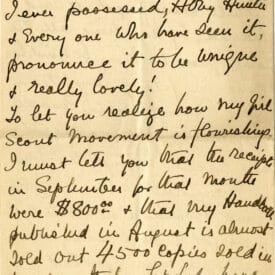 I ever possessed, Hoby
& Every one who have seen it,
pronounce it to be unique
& really lovely!
To let you realize how my Girl
Scout Movement is flourishing,
I must tell you that the receipts
in September for that month
were $800⁰⁰ & that my Handbook
published in August is almost
sold out 4500 copies sold in